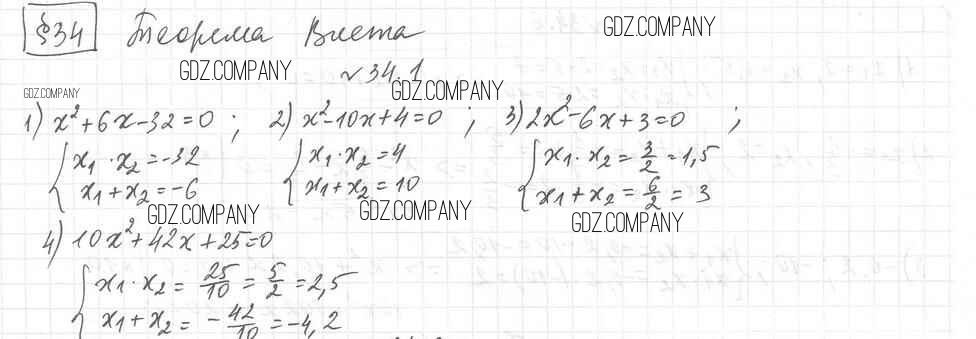 §34 Теорема Виета GDZ.COMPANY
GDZ.COMPANY № 34.1
GDZ.COMPANY GDZ.COMPANY
1) x²+6x-32=0 ; 2) x²-10x+4=0 ; 3) 2x²-6x+3=0 ;
{ x₁·x₂=-32 { x₁·x₂=4 { x₁·x₂=3/2=1,5
x₁+x₂=-6 x₁+x₂=10 x₁+x₂=6/2=3
GDZ.COMPANY GDZ.COMPANY GDZ.COMPANY
4) 10x²+42x+25=0
{ x₁·x₂=25/10=5/2=2,5
x₁+x₂=-42/10=-4,2